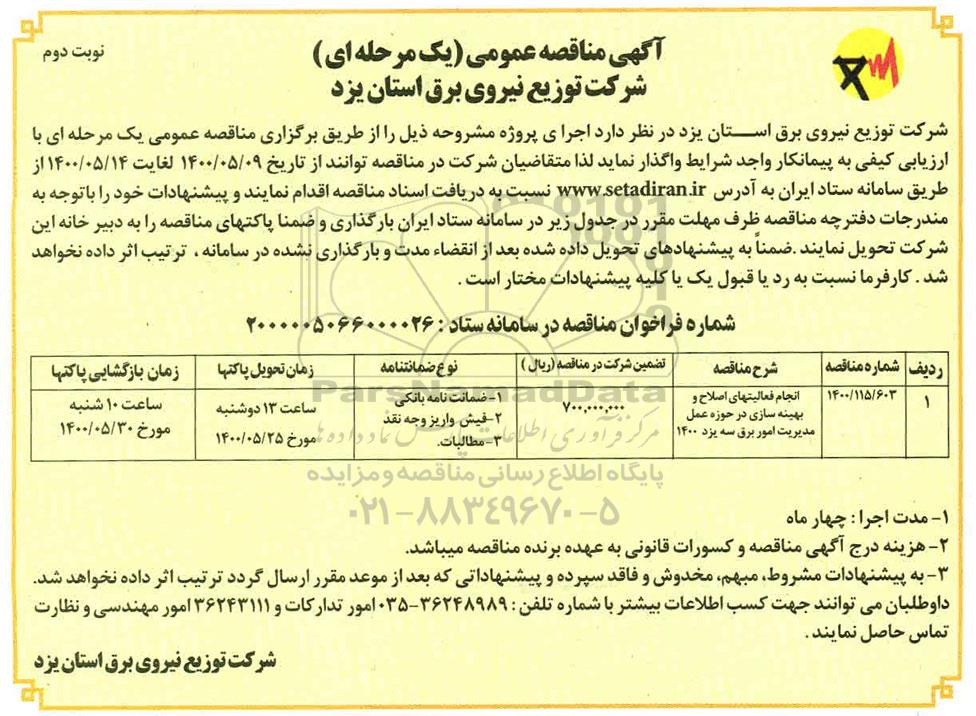 نوبت دوم
آگهی مناقصه عمومی (یک مرحله ای)
شرکت توزیع نیروی برق استان یزد
شرکت توزیع نیروی برق استان یزد در نظر دارد اجرا ی پروژه مشروحه ذیل را از طریق برگزاری مناقصه عمومی یک مرحله ای با
ارزیابی کیفی به پیمانکار واجد شرایط واگذار نماید لذا متقاضیان شرکت در مناقصه توانند از تاریخ ۱۴۰۰/۰۵/۰۹ لغایت ۱۴۰۰/۰۵/۱۴ از
طریق سامانه ستاد ایران به آدرس www.setadiran.ir نسبت به دریافت اسناد مناقصه اقدام نمایند و پیشنهادات خود را باتوجه به
مندرجات دفترچه مناقصه ظرف مهلت مقرر در جدول زیر در سامانه ستاد ایران بارگذاری و ضمنا پاکتهای مناقصه را به دبیر خانه این
شرکت تحویل نمایند .ضمناً به پیشنهادهای تحویل داده شده بعد از انقضاء مدت و بارگذاری نشده در سامانه ، ترتیب اثر داده نخواهد
شد . کارفرما نسبت به رد یا قبول یک یا کلیه پیشنهادات مختار است .
شماره فراخوان مناقصه در سامانه ستاد : ۲۰۰۰۰۰۵۰۶۶۰۰۰۰۲۶
ردیف شماره مناقصه شرح مناقصه تضمین شرکت در مناقصه (ریال ) نوع ضمانتنامه زمان تحویل پاکتها زمان بازگشایی پاکتها
۱ ۱۴۰۰/۱۱۵/۶۰۳ انجام فعالیتهای اصلاح و ۷۰۰,۰۰۰,۰۰۰ ۱- ضمانت نامه بانکی ساعت ۱۳ دوشنبه ساعت ۱۰ شنبه
بهینه سازی در حوزه عمل ۲-فیش واریز وجه نقد مورخ ۱۴۰۰/۰۵/۲۵ مورخ ۱۴۰۰/۰۵/۳۰
مدیریت امور برق سه یزد ۱۴۰۰ ۳-مطالبات.
ParsNamadData
مرکز فرآوری اطلاعات پارس نماد داده ها
پایگاه اطلاع رسانی مناقصه و مزایده
۰۲۱-۸۸۳۴۹۶۷۰-۵
۱- مدت اجرا : چهار ماه
۲- هزینه درج آگهی مناقصه و کسورات قانونی به عهده برنده مناقصه میباشد.
۳- به پیشنهادات مشروط، مبهم، مخدوش و فاقد سپرده و پیشنهاداتی که بعد از موعد مقرر ارسال گردد ترتیب اثر داده نخواهد شد.
داوطلبان می توانند جهت کسب اطلاعات بیشتر با شماره تلفن : ۳۶۲۴۸۹۸۹-۰۳۵ امور تدارکات و ۳۶۲۴۳۱۱۱ امور مهندسی و نظارت
تماس حاصل نمایند .
شرکت توزیع نیروی برق استان یزد